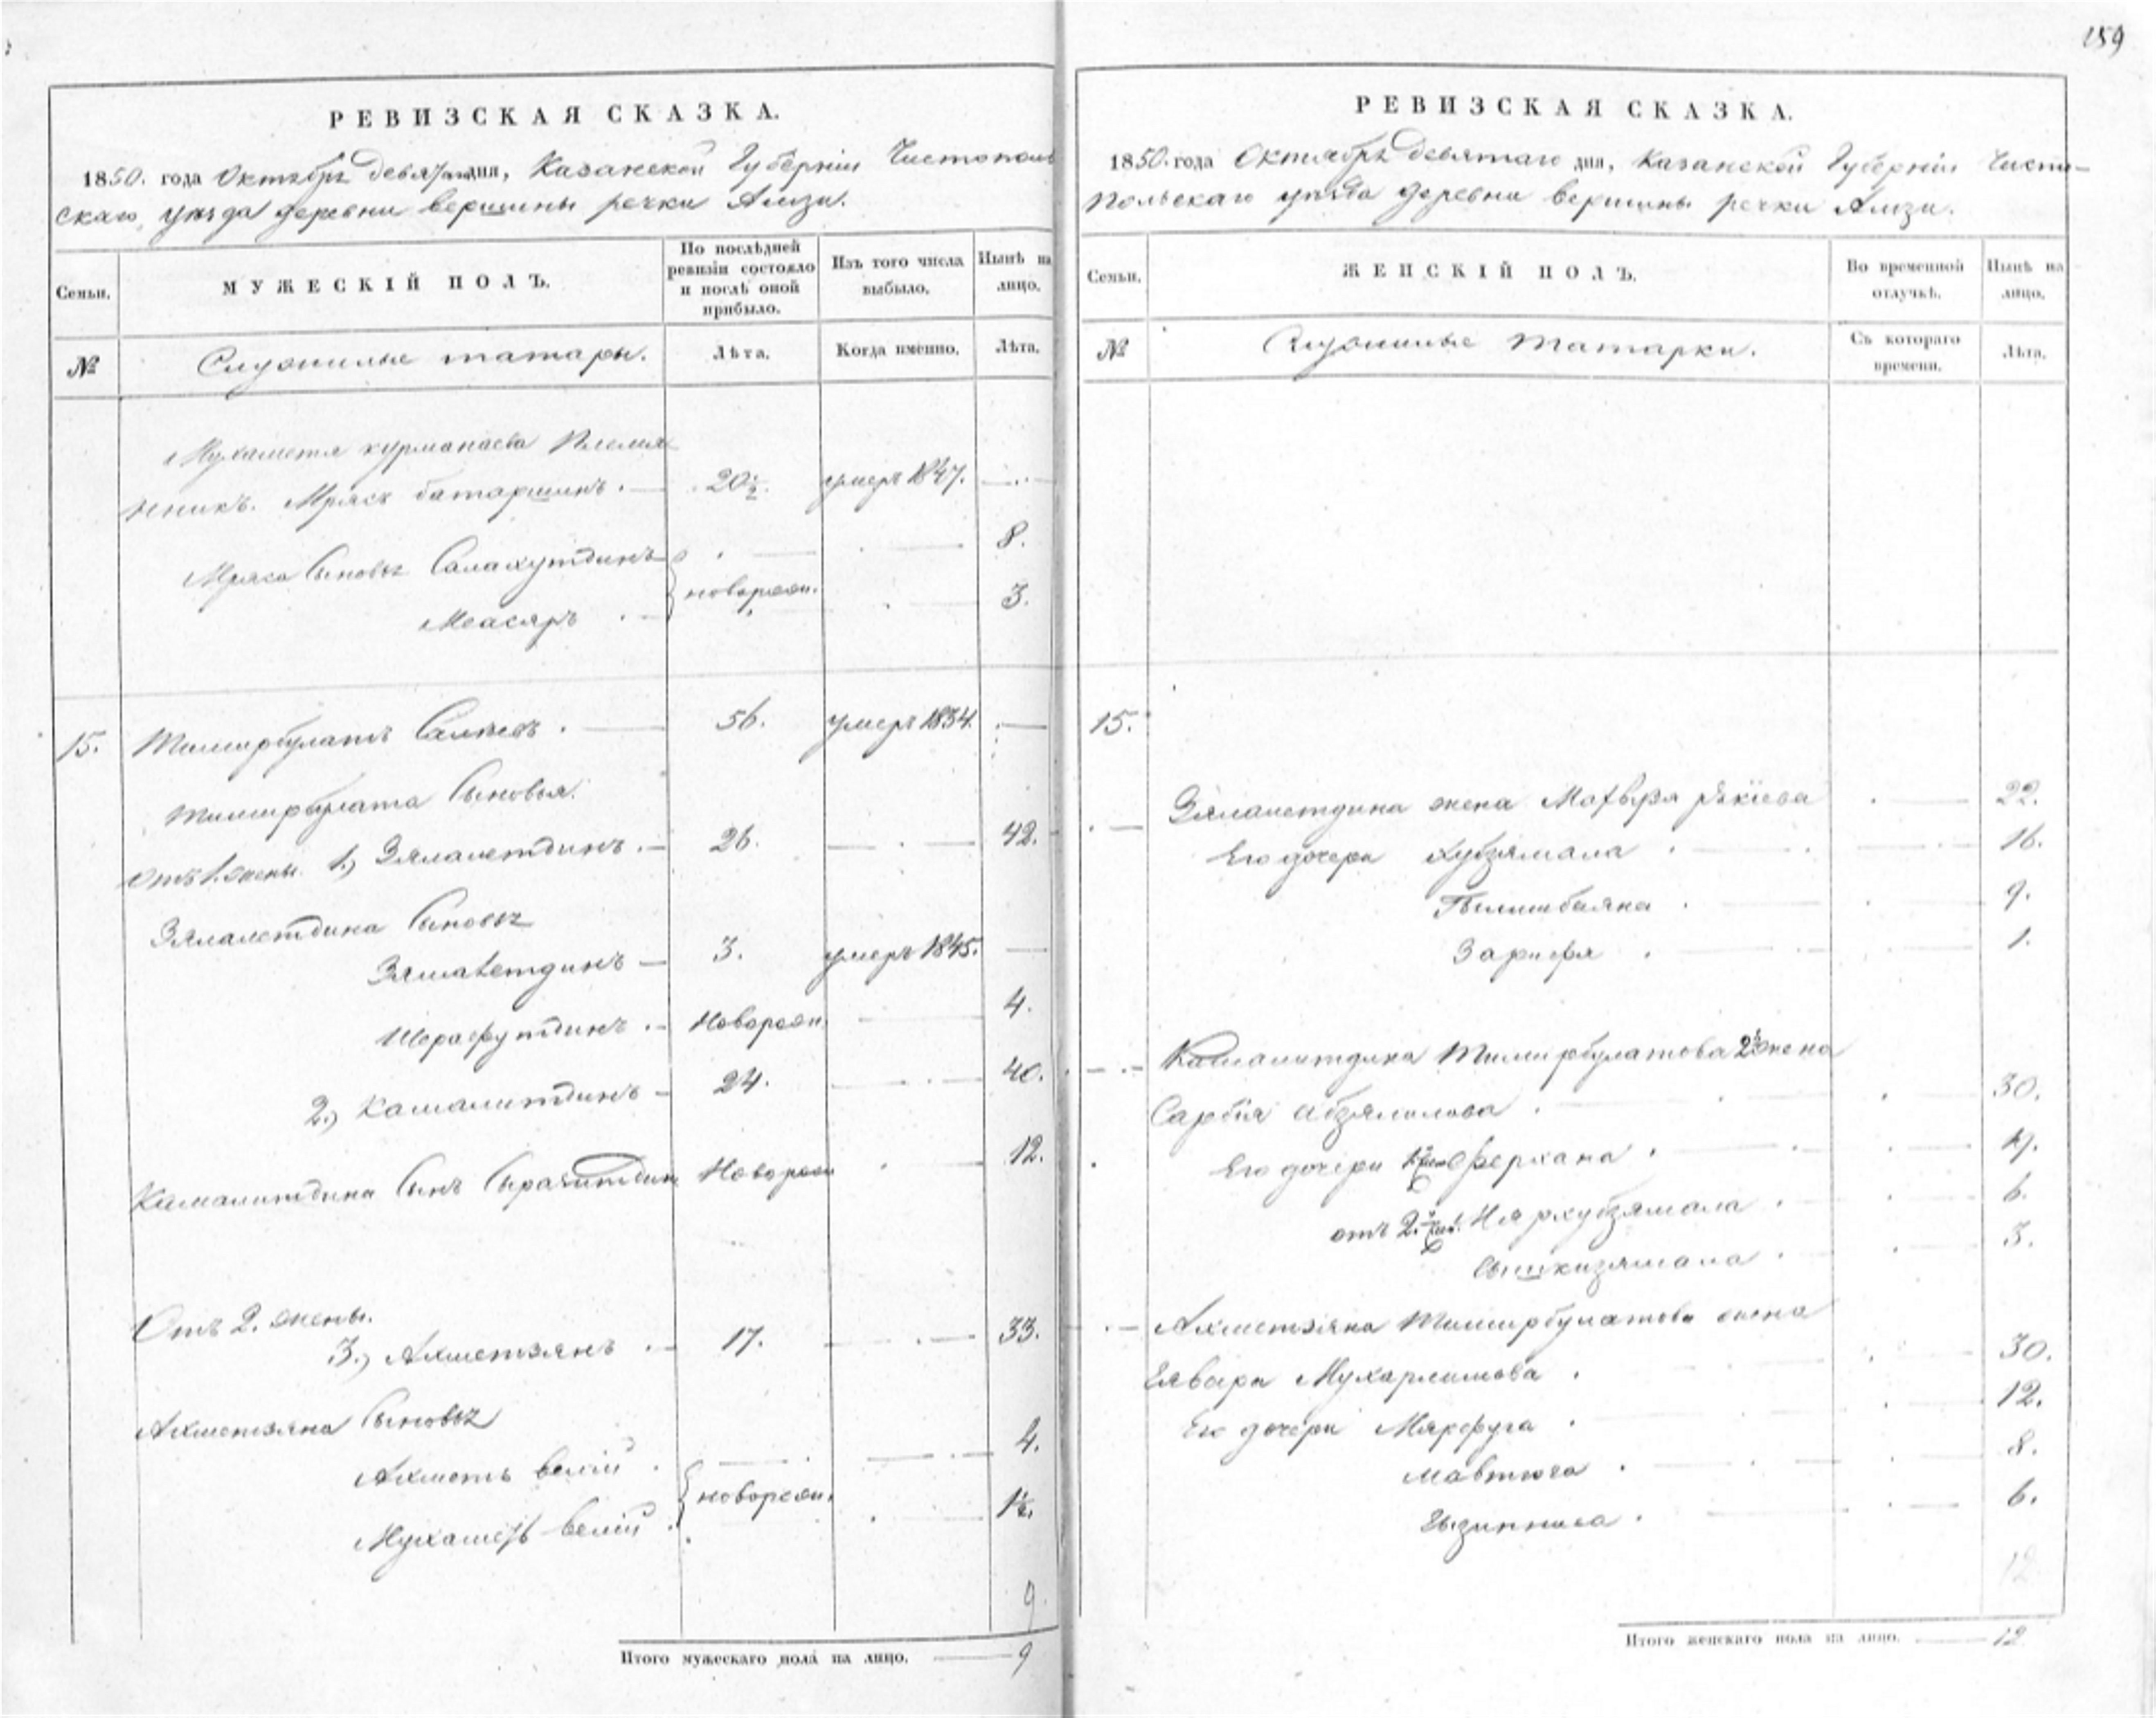 159
РЕВИЗСКАЯ СКАЗКА.
1850. года Октября девятаго дня, Казанской Губерніи Чистополь
скаго, уѣзда деревни вершины речки Ализи.
Семьи.
МУЖЕСКІЙ ПОЛЪ.
По послѣдней ревизіи состояло и послѣ оной прибыло.
Изъ того числа выбыло.
Нынѣ на лицо.
№
Служилые татары.
Лѣта.
Когда именно.
Лѣта.
Мухаметя курманаева Племян
никъ. Мрясь батаршинъ. 20 1/2. умеръ 1847.
Мряса Сыновья Салахутдинъ 8.
новорож.
Мансяръ 3.
15. Тимирбулатъ Салѣевъ. 56. умеръ 1834.
Тимирбулата Сыновья.
Отъ 1. жены. 1.) Зялалетдинъ. 26. 42.
Зялалетдина Сыновья
Зямалетдинъ 3. умеръ 1845.
Шарафутдинъ. Новорож. 4.
2.) Камалитдинъ 24. 40.
Камалитдина Сынъ Сыразитдин Новорож 12.
Отъ 2. жены.
3.) Ахметзянъ. 17. 33.
Ахметзяна Сыновья
Ахметь велій. 4.
новорож.
Мухаметь велій. 1 1/2.
9.
Итого мужескаго пола на лицо. 9
РЕВИЗСКАЯ СКАЗКА.
1850. года Октября девятаго дня, Казанской Губерніи Чисто-
польскаго уѣзда деревни вершины речки Ализи.
Семьи.
ЖЕНСКІЙ ПОЛЪ.
Во временной отлучкѣ.
Нынѣ на лицо.
№
Служилые татарки.
Съ котораго времени.
Лѣта.
15.
Зялалетдина жена 22.
Его дочери Хубзямала 16.
9.
Зарифя 1.
Камалитдина Тимирбулатова 2й жена
Сарбія Абзялилова 30.
Его дочери Ферхана 19.
отъ 2. Нярхубзямала 6.
3.
Ахметзяна Тимирбулатова жена
Мухарлямова 30.
Его дочери Мярфуга 12.
8.
6.
12
Итого женскаго пола на лицо. 12